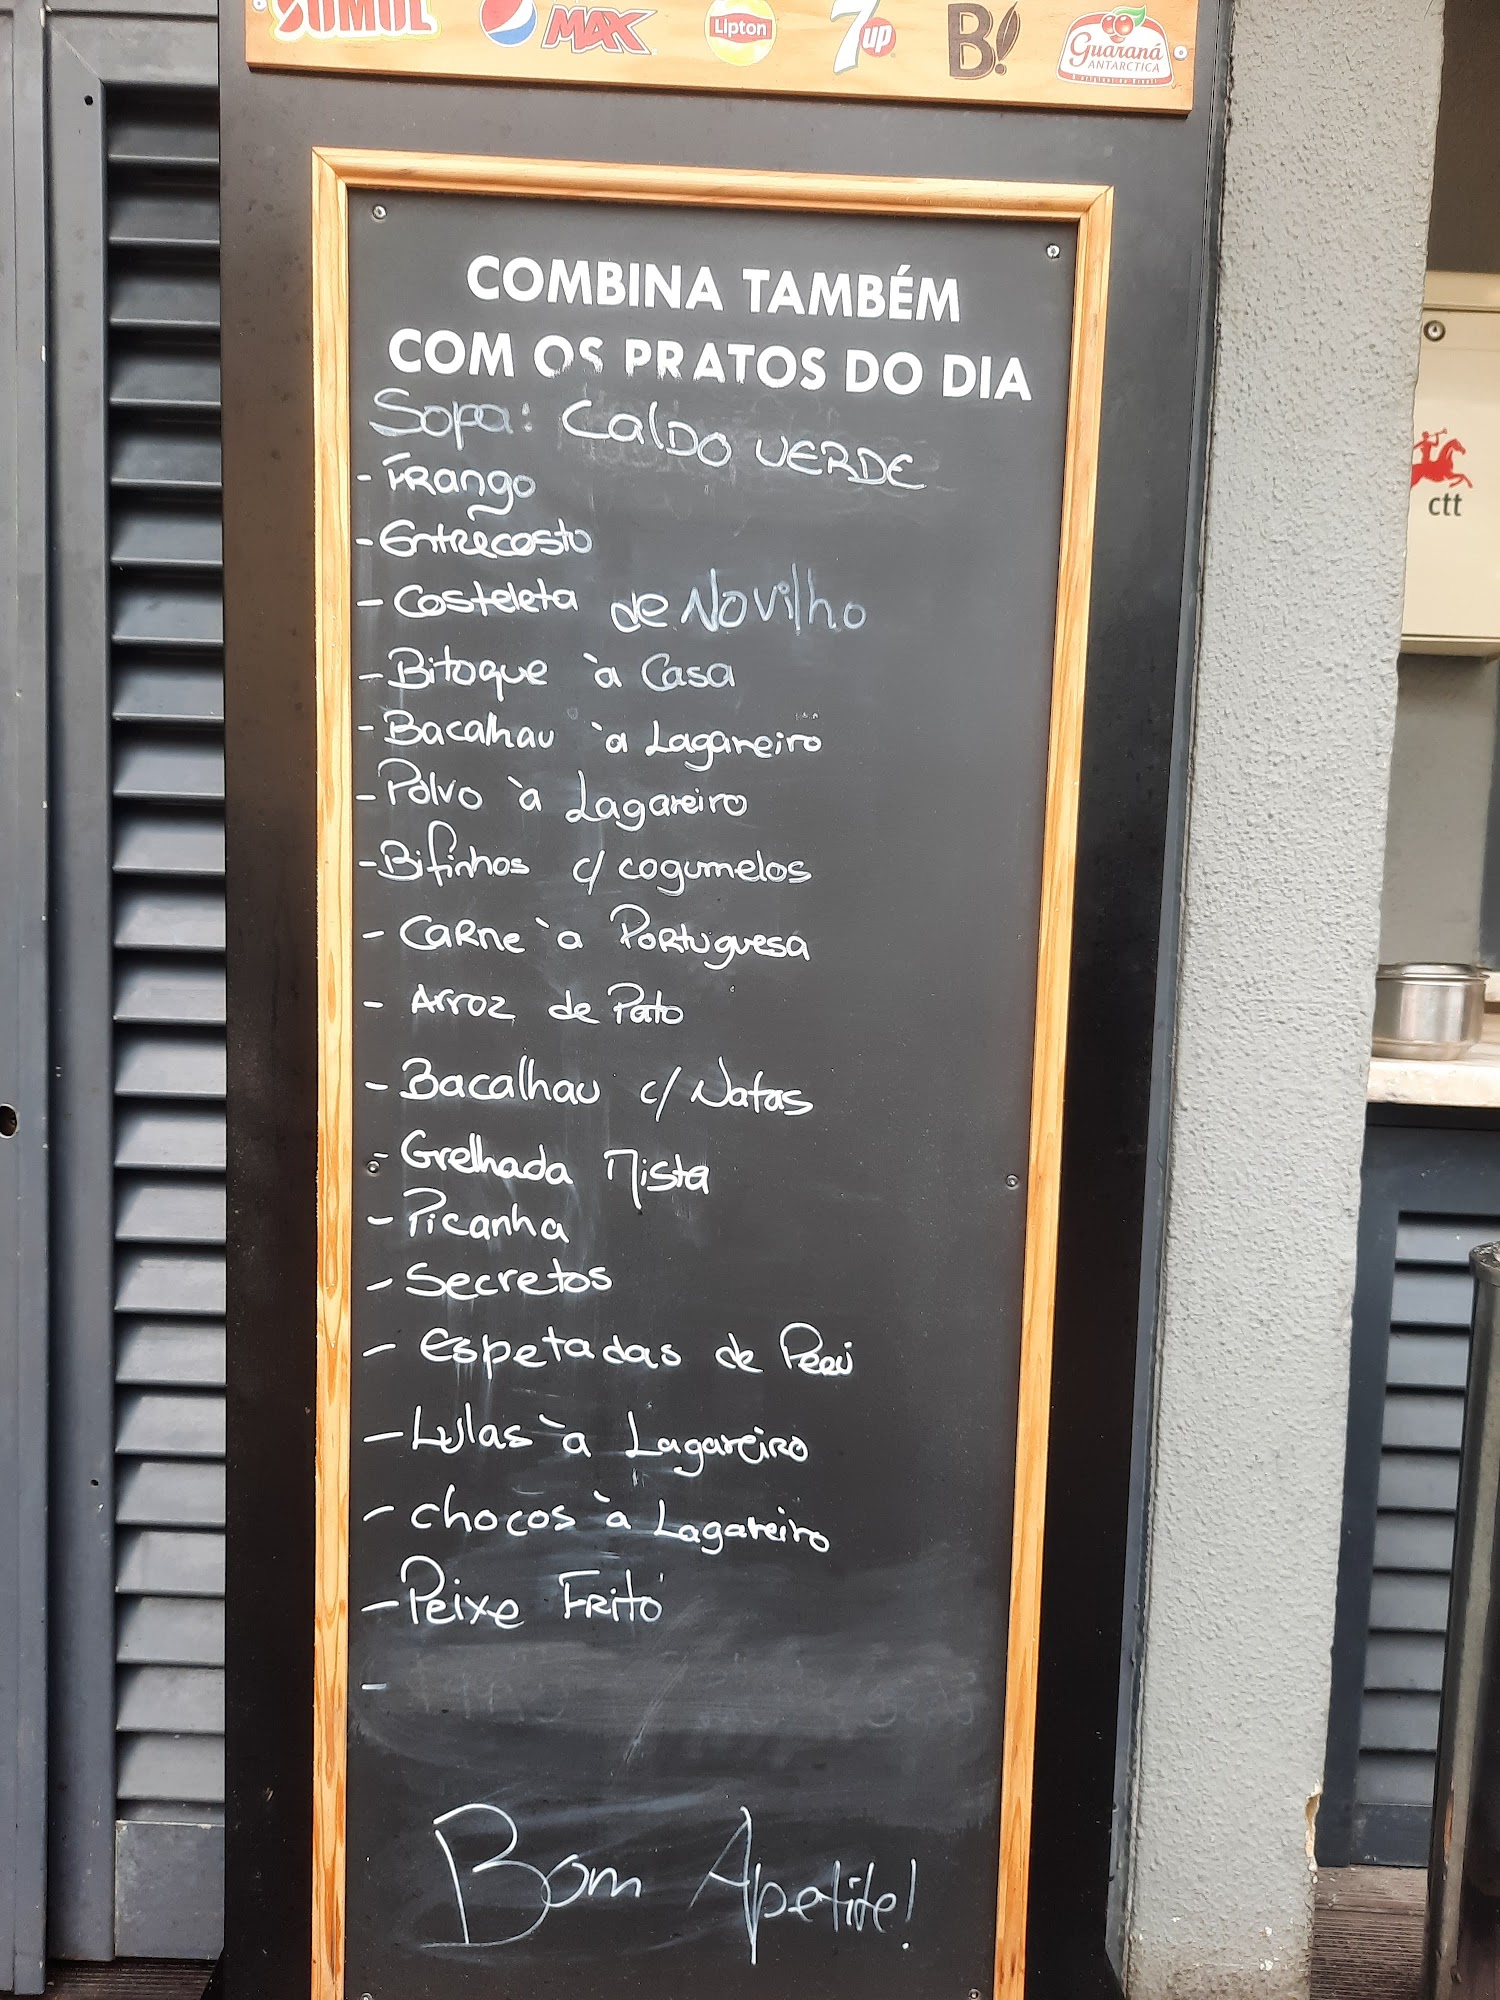 SUMOL MAX Lipton 7up B! Guaraná ANTARCTICA
COMBINA TAMBÉM
COM OS PRATOS DO DIA
Sopa: Caldo VERDE
- Frango
- Entrecosto
- Costeleta de Novilho
- Bitoque à Casa
- Bacalhau à Lagareiro
- Polvo à Lagareiro
- Bifinhos c/ cogumelos
- Carne à Portuguesa
- Arroz de Pato
- Bacalhau c/ Natas
- Grelhada Mista
- Picanha
- Secretos
- Espetadas de Peru
- Lulas à Lagareiro
- Chocos à Lagareiro
- Peixe Frito
-
Bom Apetite!
ctt